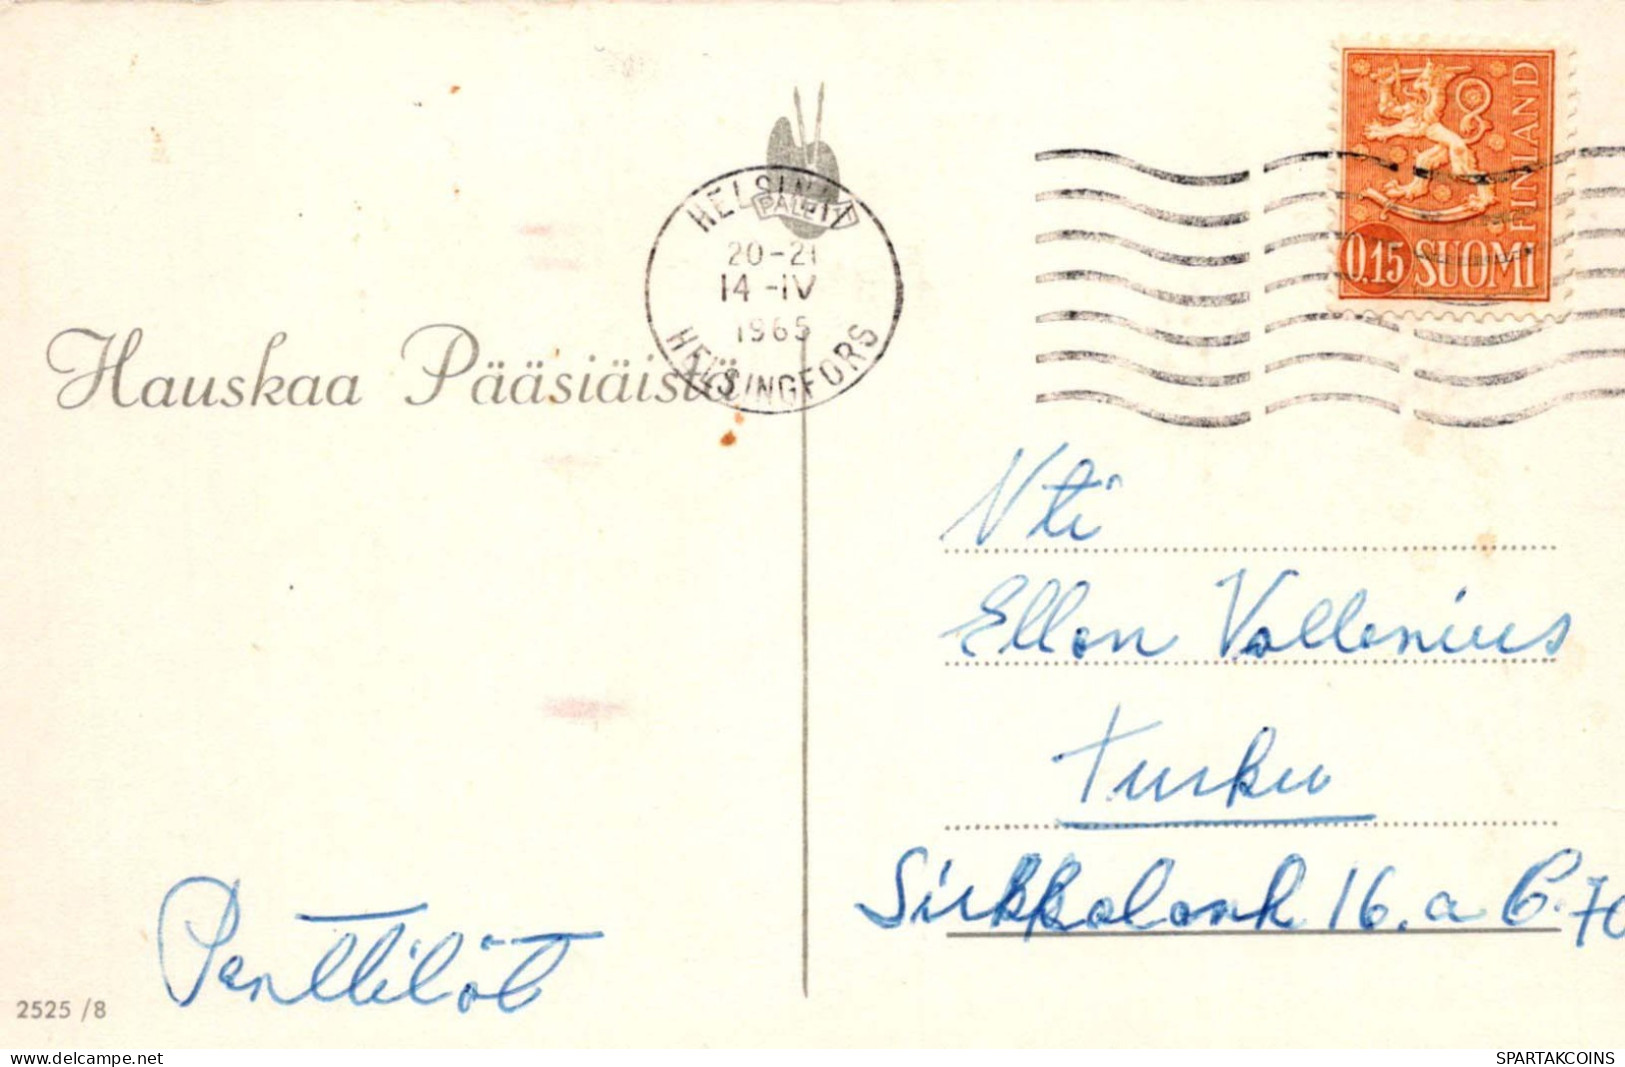 FINLAND
0.15 SUOMI
HELSINKI
PALETT
20-21
14-IV
1965
HELSINGFORS
Hauskaa Pääsiäistä
Nti
Ellen Vallenius
Turku
Sirkkalank 16. a C. 70
Penttilät
2525 /8
delcampe.net
SPARTAKCOINS